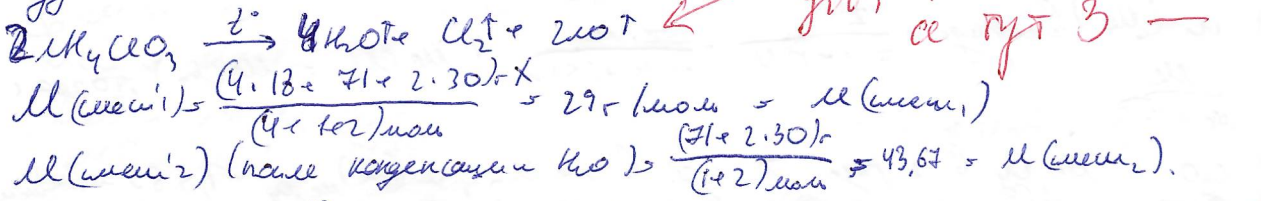 а тут 3 —
2NH₄ClO₃ —t°→ 4H₂O↑ + Cl₂↑ + 2NO↑
M(смеси'1) = (4·18 + 71 + 2·30)г / (4+1+2)моль = 29г/моль = M(смеси₁)
M(смеси'2) (после конденсации H₂O) = (71+2·30)г / (1+2)моль = 43,67 = M(смеси₂).